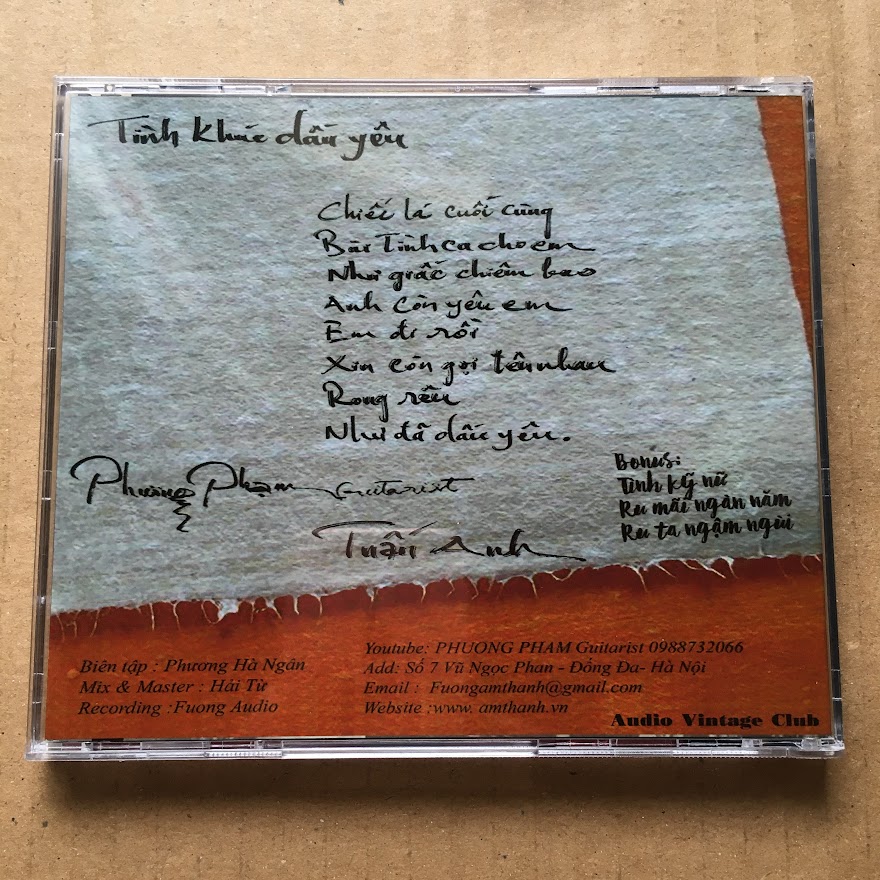 Tình khúc dấu yêu
Chiếc lá cuối cùng
Bài Tình ca cho em
Như giấc chiêm bao
Anh còn yêu em
Em đi rồi
Xin còn gọi tên nhau
Rong rêu
Như đã dấu yêu.
Phương Phạm Guitarist
Tuấn Anh
Bonus:
Tình kỹ nữ
Ru mãi ngàn năm
Ru ta ngậm ngùi
Biên tập : Phương Hà Ngân
Mix & Master : Hải Từ
Recording :Fuong Audio
Youtube: PHUONG PHAM Guitarist 0988732066
Add: Số 7 Vũ Ngọc Phan - Đống Đa- Hà Nội
Email : Fuongamthanh@gmail.com
Website :www. amthanh.vn
Audio Vintage Club